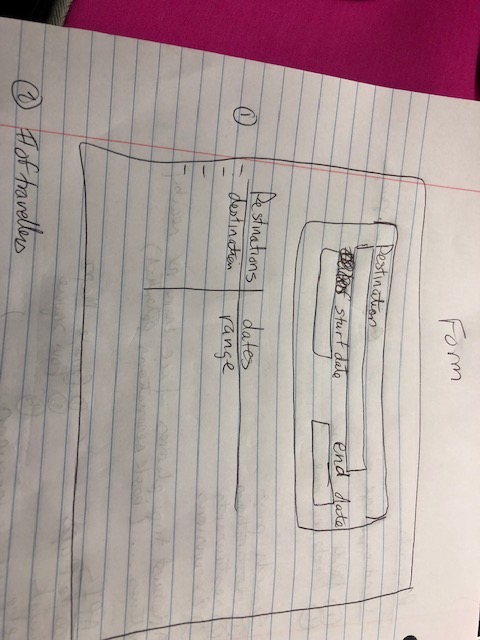 Form
Destination
start date end date
①
Destinations dates
destination range
② # of travellers